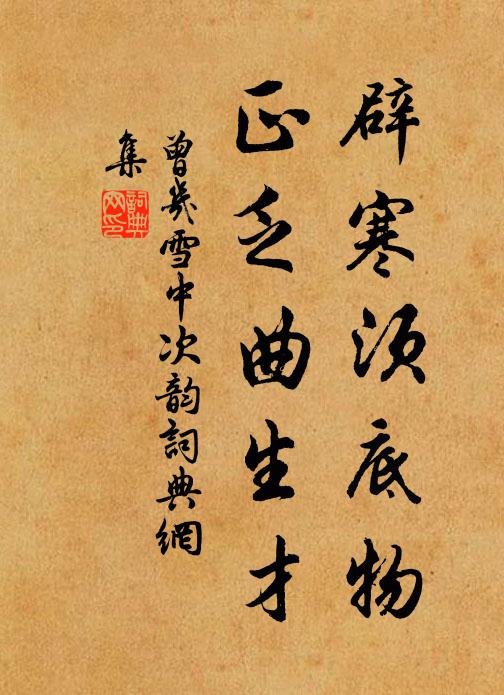 辟寒須底物
正乏曲生才
曾幾雪中次韵詞典網
集
詞典
网印